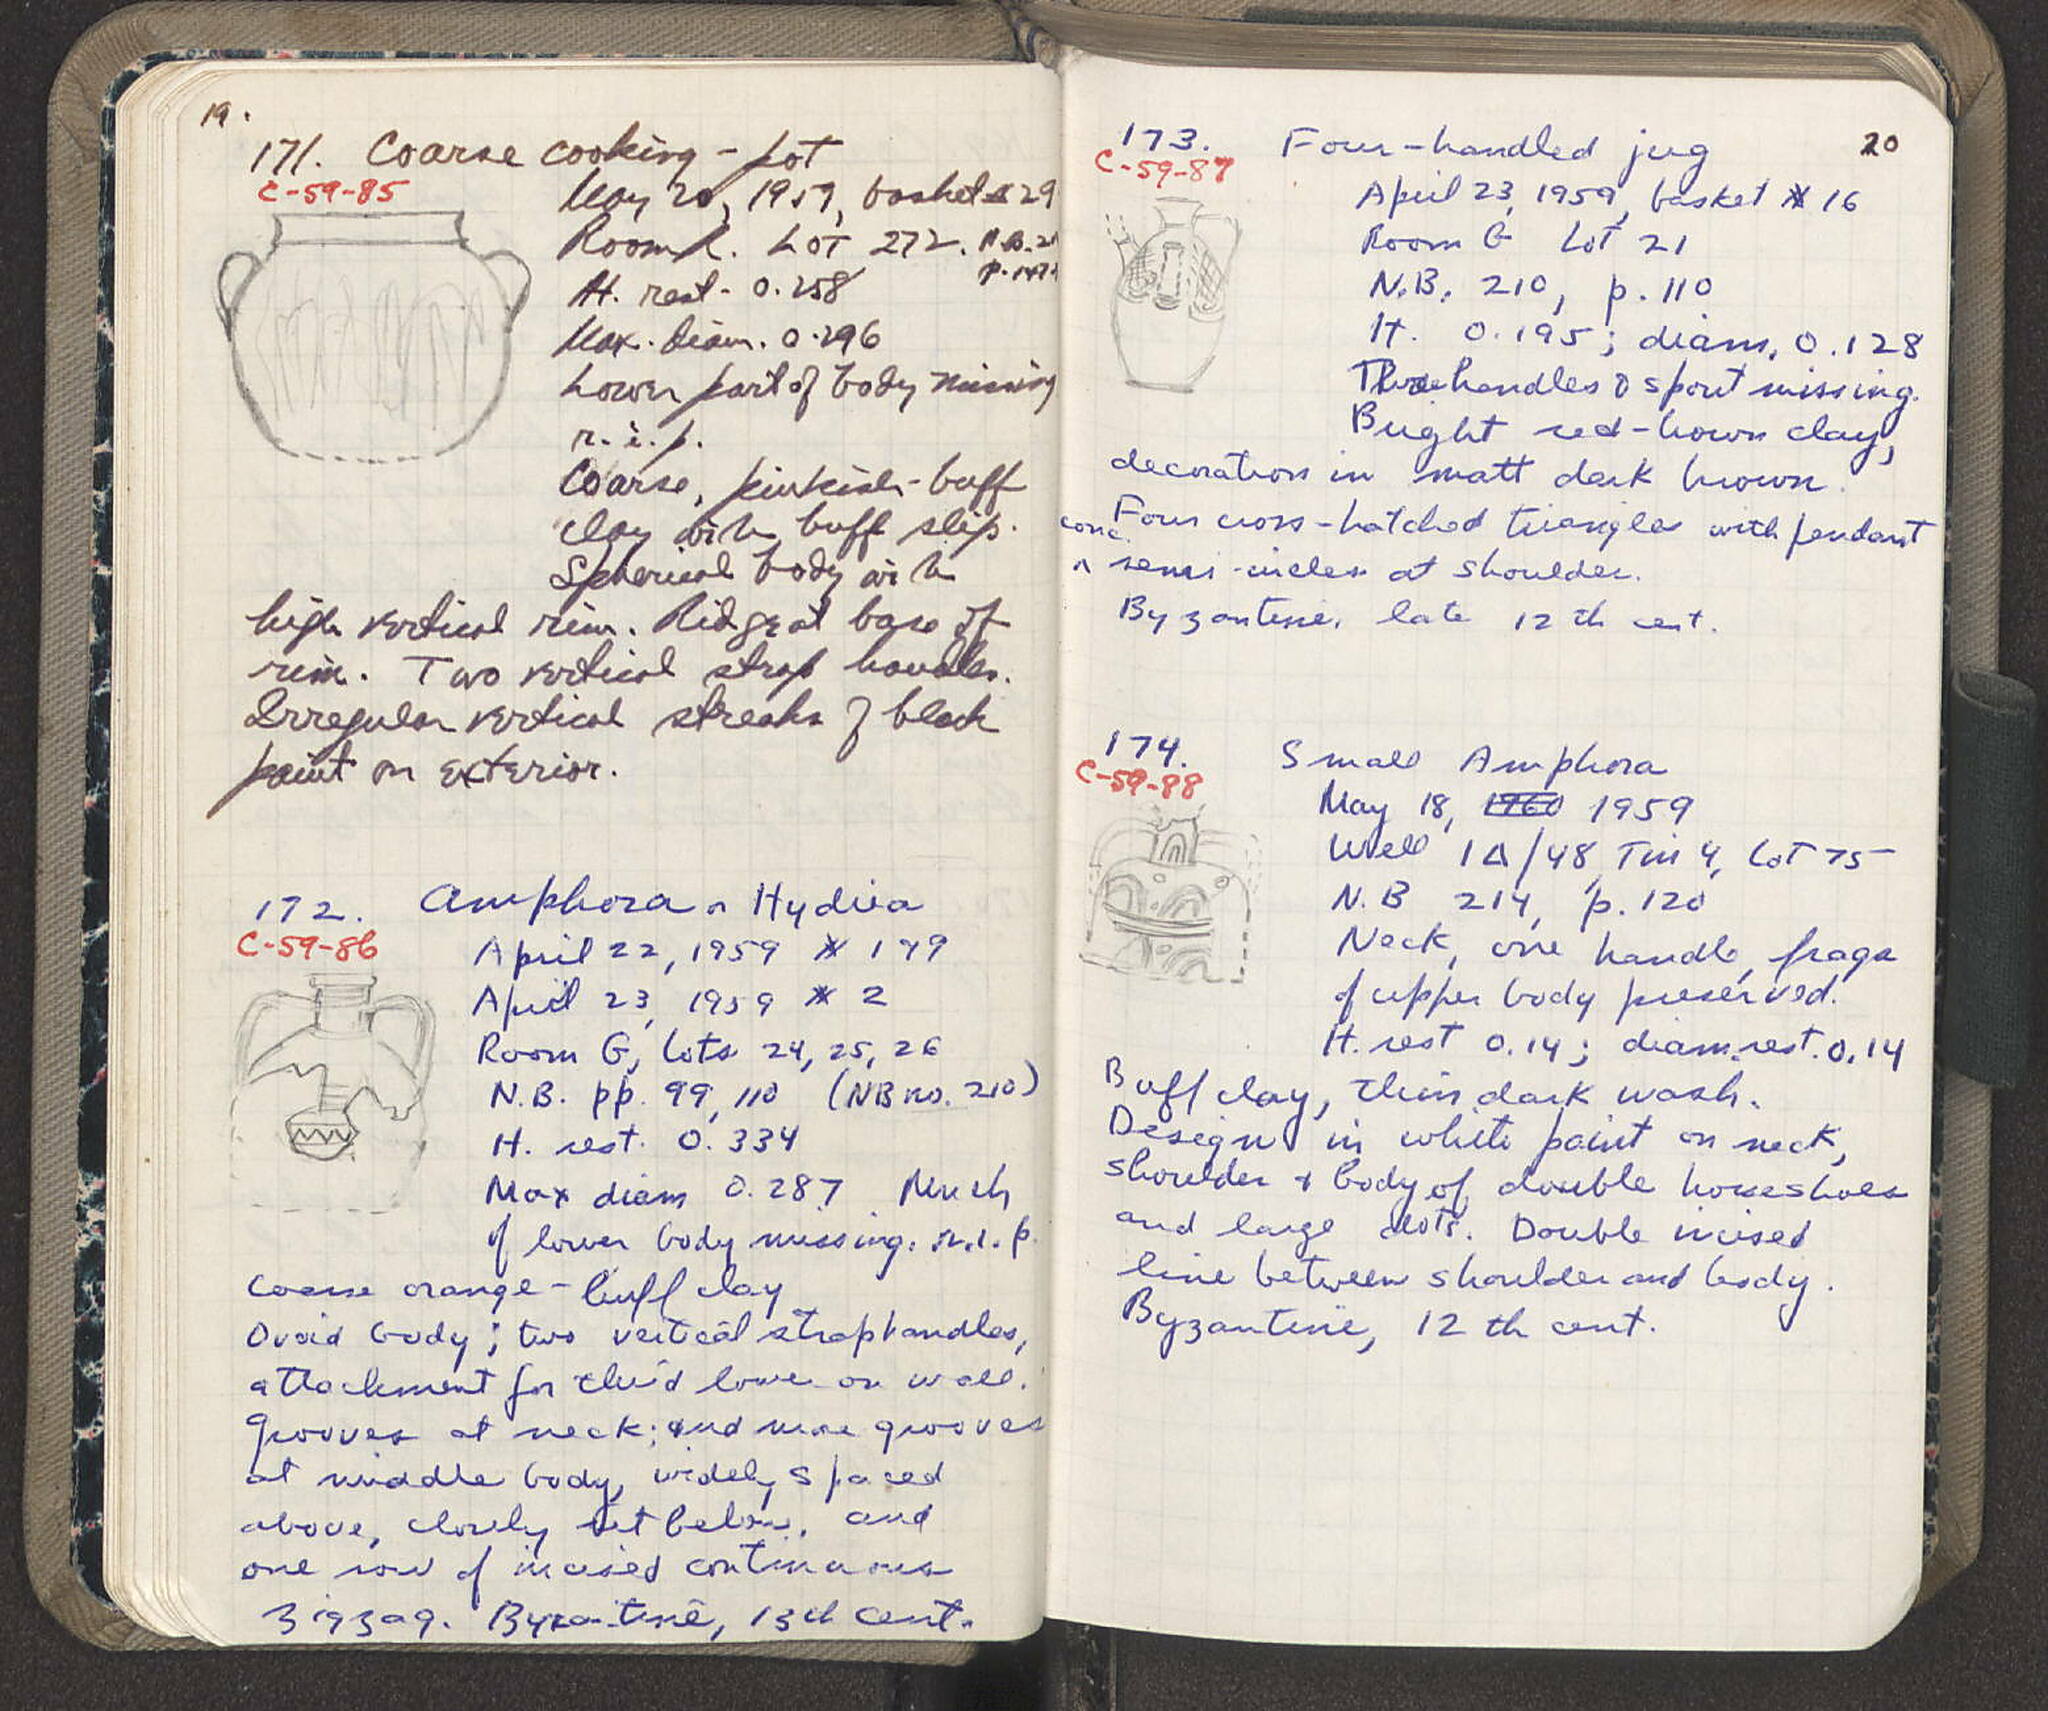 19.
171. Coarse cooking-pot
C-59-85
May 20, 1959, basket # 29
Room R. Lot 272. N.B. 21
p. 147
H. rest. 0.258
Max. diam. 0.296
Lower part of body missing
r.i.p.
Coarse, pinkish-buff
clay with buff slip.
Spherical body with
high vertical rim. Ridge at base of
rim. Two vertical strap handles.
Irregular vertical streaks of black
paint on exterior.
172. Amphora or Hydria
C-59-86
April 22, 1959 # 199
April 23, 1959 # 2
Room G, Lots 24, 25, 26
N.B. pp. 99, 110 (NB no. 210)
H. rest. 0.334
Max diam 0.287 Much
of lower body missing. r.i.p.
Coarse orange-buff clay
Ovoid body; two vertical strap handles,
attachment for third lower on wall.
Grooves at neck; and more grooves
at middle body, widely spaced
above, closely set below, and
one row of incised continuous
zigzag. Byzantine, 13th cent.
20
173. Four-handled jug
C-59-87
April 23, 1959, basket # 16
Room G Lot 21
N.B. 210, p. 110
H. 0.195; diam. 0.128
Three handles & spout missing.
Bright red-brown clay,
decoration in matt dark brown.
Four cross-hatched triangles with pendant
conc.
^ semi-circles at shoulder.
Byzantine, late 12th cent.
174. Small Amphora
C-59-88
May 18, 1960 1959
Well 1Δ/48, Tin 4, Lot 75
N.B 214, p. 120
Neck, one handle, frags
of upper body preserved.
H. rest 0.14; diam. rest. 0.14
Buff clay, thin dark wash.
Design in white paint on neck,
shoulder + body of double horseshoes
and large dots. Double incised
line between shoulder and body.
Byzantine, 12th cent.